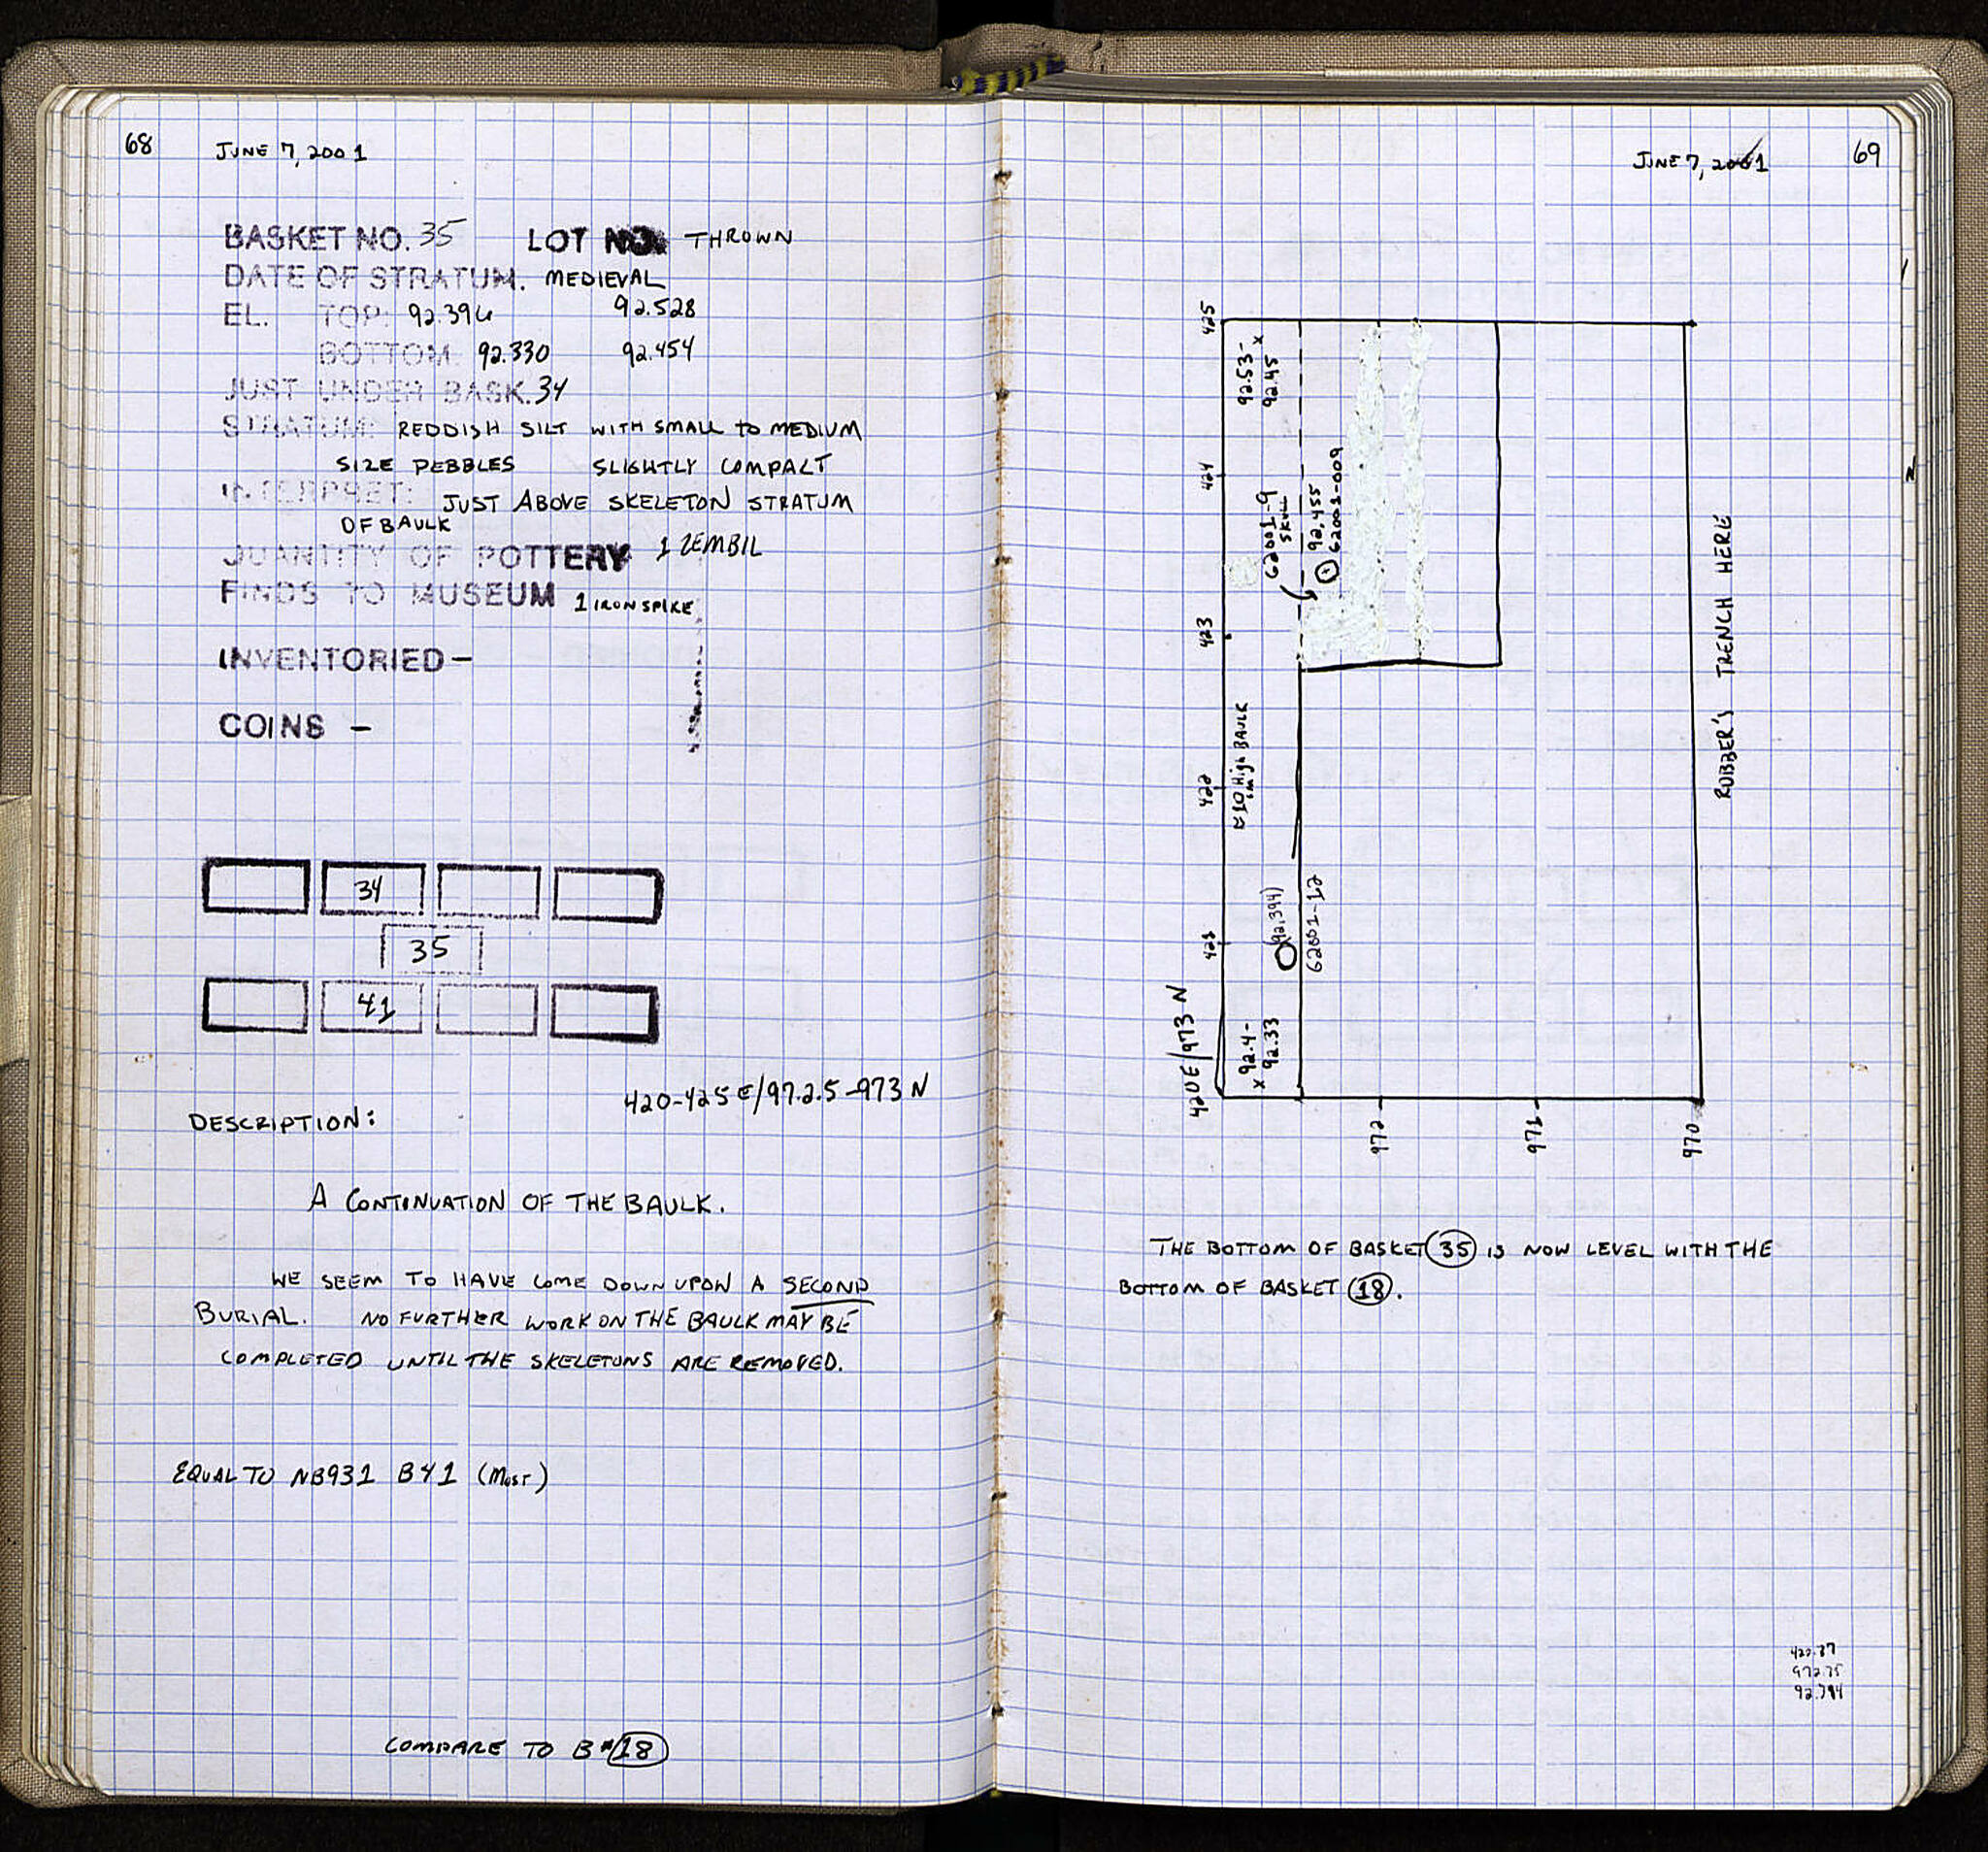 68
JUNE 7, 2001
BASKET NO. 35 LOT NO. THROWN
DATE OF STRATUM. MEDIEVAL
EL. TOP: 92.396 92.528
BOTTOM: 92.330 92.454
JUST UNDER BASK. 34
STRATUM: REDDISH SILT WITH SMALL TO MEDIUM
SIZE PEBBLES SLIGHTLY COMPACT
INTERPRET: JUST ABOVE SKELETON STRATUM
OF BAULK
QUANTITY OF POTTERY 1 ZEMBIL
FINDS TO MUSEUM 1 IRON SPIKE
INVENTORIED -
COINS -
34
35
41
420-425 E/972.5-973 N
DESCRIPTION:
A CONTINUATION OF THE BAULK.
WE SEEM TO HAVE COME DOWN UPON A SECOND
BURIAL. NO FURTHER WORK ON THE BAULK MAY BE
COMPLETED UNTIL THE SKELETONS ARE REMOVED.
EQUAL TO NB931 B41 (MOST)
COMPARE TO B#18
JUNE 7, 2001
69
425
424
423
422
421
420E/973 N
92.53-
92.45 x
62001-9
SKULL
92.455
62001-009
≈10 High BAULK
(92.394)
62001-12
x 92.4-
92.33
ROBBER'S TRENCH HERE
972
971
970
THE BOTTOM OF BASKET 35 IS NOW LEVEL WITH THE
BOTTOM OF BASKET 18.
972.75